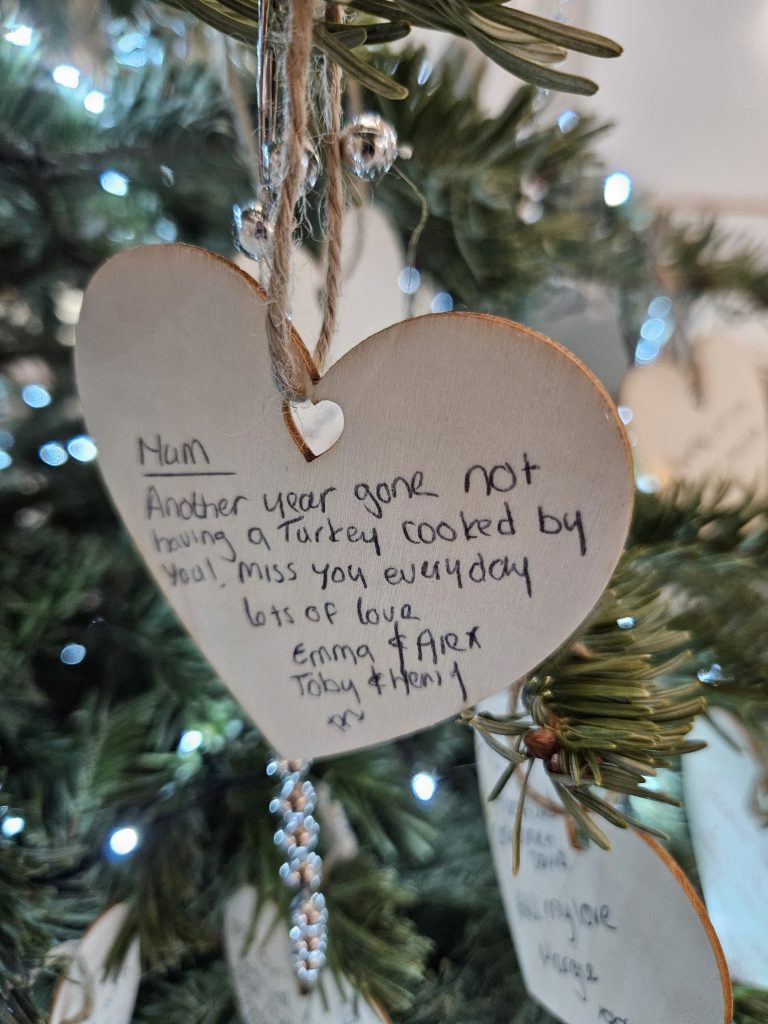 Mum
Another year gone not
having a Turkey cooked by
you!. Miss you everyday
lots of love
Emma & Alex
Toby & Henry
my love